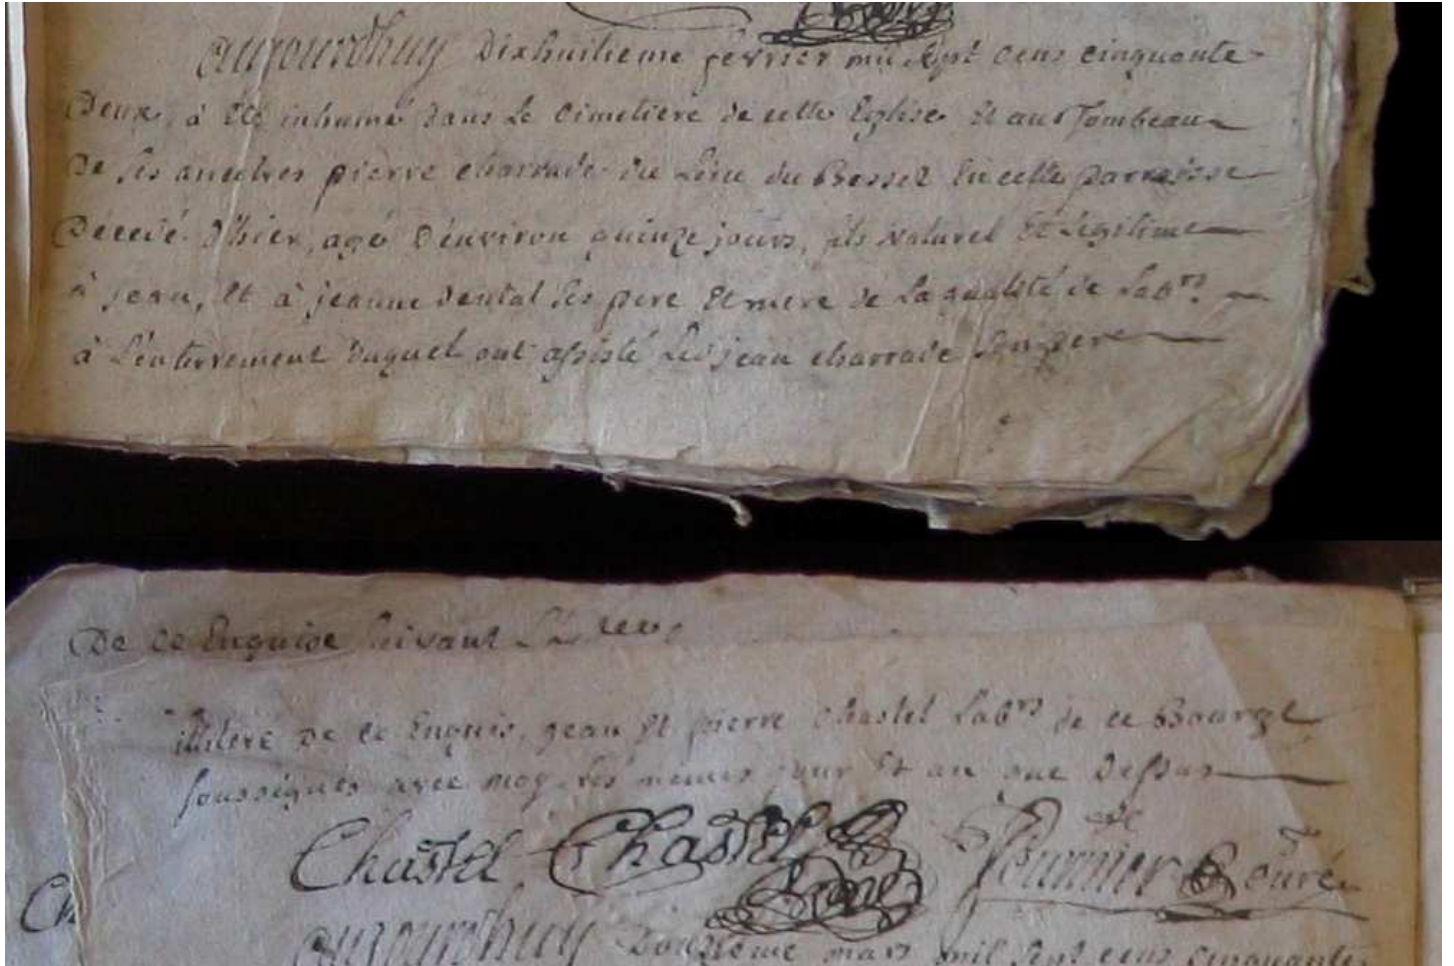 aujourdhuy Dixhuitieme fevrier mil Sept cens cinquante
Deux, à Eté inhumé dans Le cimetiere de cette Eglise Et au Tombeau
De ses ancetres pierre charrade du Lieu du Besset En cette parroisse
Décedé d'hier, agé D'environ quinze jours, fils Naturel Et Légitime
à jean, Et à jeanne dental ses pere Et mere de La qualité de Labrs
à L'enterrement duquel ont assisté Led jean charrade Son pere
De ce Enquise suivant
illiteré De ce Enquis, jean Et pierre Chastel Labrs de ce Bourg
soussignés avec moy Les memes jour Et an que Dessus
Chastel Chastel Fournier Curé
Ch
aujourdhuy Douzieme mars mil Sept cens cinquante